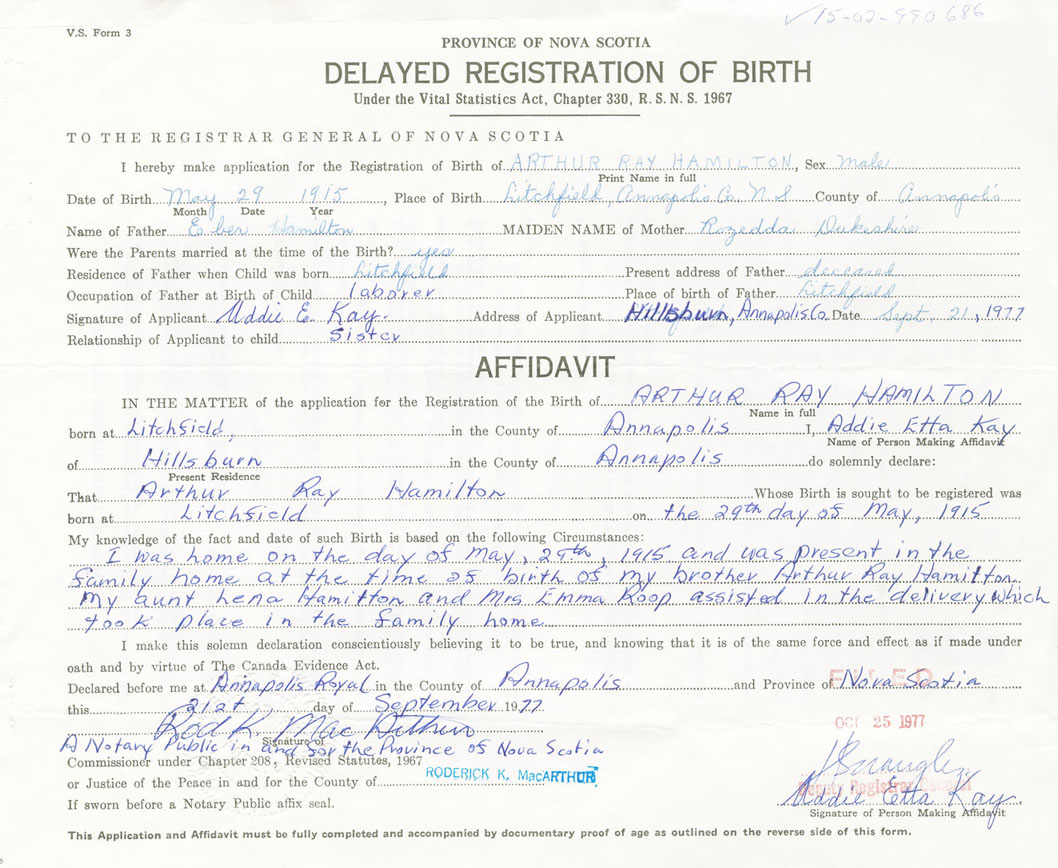 V.S. Form 3
✓15-02-990686
PROVINCE OF NOVA SCOTIA
DELAYED REGISTRATION OF BIRTH
Under the Vital Statistics Act, Chapter 330, R.S.N.S. 1967
TO THE REGISTRAR GENERAL OF NOVA SCOTIA
I hereby make application for the Registration of Birth of ARTHUR RAY HAMILTON, Sex Male
Print Name in full
Date of Birth May 29 1915, Place of Birth Litchfield, Annapolis Co. N S County of Annapolis
Month Date Year
Name of Father Eber Hamilton MAIDEN NAME of Mother Rozedda Dukeshire
Were the Parents married at the time of the Birth? yes
Residence of Father when Child was born Litchfield Present address of Father deceased
Occupation of Father at Birth of Child laborer Place of birth of Father Litchfield
Signature of Applicant Addie E. Kay. Address of Applicant Hillsburn, Annapolis Co. Date Sept. 21, 1977
Relationship of Applicant to child Sister
AFFIDAVIT
IN THE MATTER of the application for the Registration of the Birth of ARTHUR RAY HAMILTON
Name in full
born at Litchfield, in the County of Annapolis I, Addie Etta Kay
Name of Person Making Affidavit
of Hillsburn in the County of Annapolis do solemnly declare:
Present Residence
That Arthur Ray Hamilton Whose Birth is sought to be registered was
born at Litchfield on the 29th day of May, 1915
My knowledge of the fact and date of such Birth is based on the following Circumstances:
I was home on the day of May, 29th, 1915 and was present in the
family home at the time of birth of my brother Arthur Ray Hamilton.
My aunt Lena Hamilton and Mrs Emma Roop assisted in the delivery which
took place in the family home
I make this solemn declaration conscientiously believing it to be true, and knowing that it is of the same force and effect as if made under
oath and by virtue of The Canada Evidence Act.
Declared before me at Annapolis Royal in the County of Annapolis and Province of Nova Scotia
FILED
this 21st day of September 1977
OCT 25 1977
Rod K. MacArthur
Signature of
A Notary Public in and for the Province of Nova Scotia
Commissioner under Chapter 208, Revised Statutes, 1967
RODERICK K. MacARTHUR
or Justice of the Peace in and for the County of
Deputy Registrar General
Addie Etta Kay
If sworn before a Notary Public affix seal.
Signature of Person Making Affidavit
This Application and Affidavit must be fully completed and accompanied by documentary proof of age as outlined on the reverse side of this form.